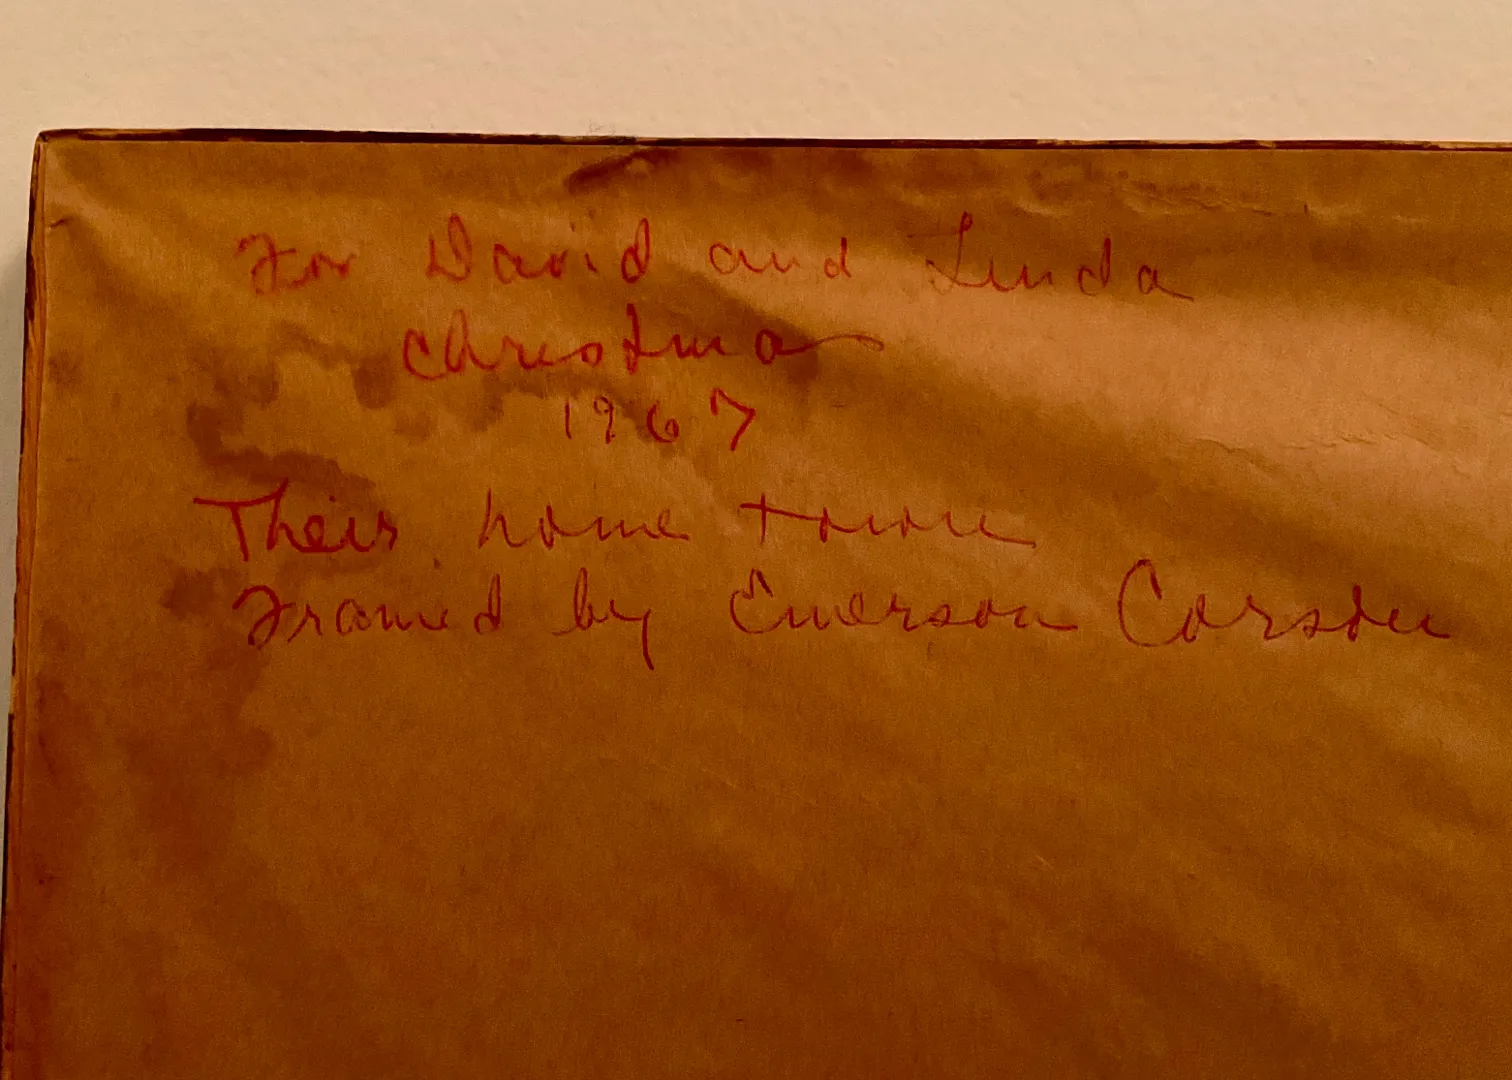 For David and Linda
Christmas
1967
Their home town
Framed by Emerson Corson